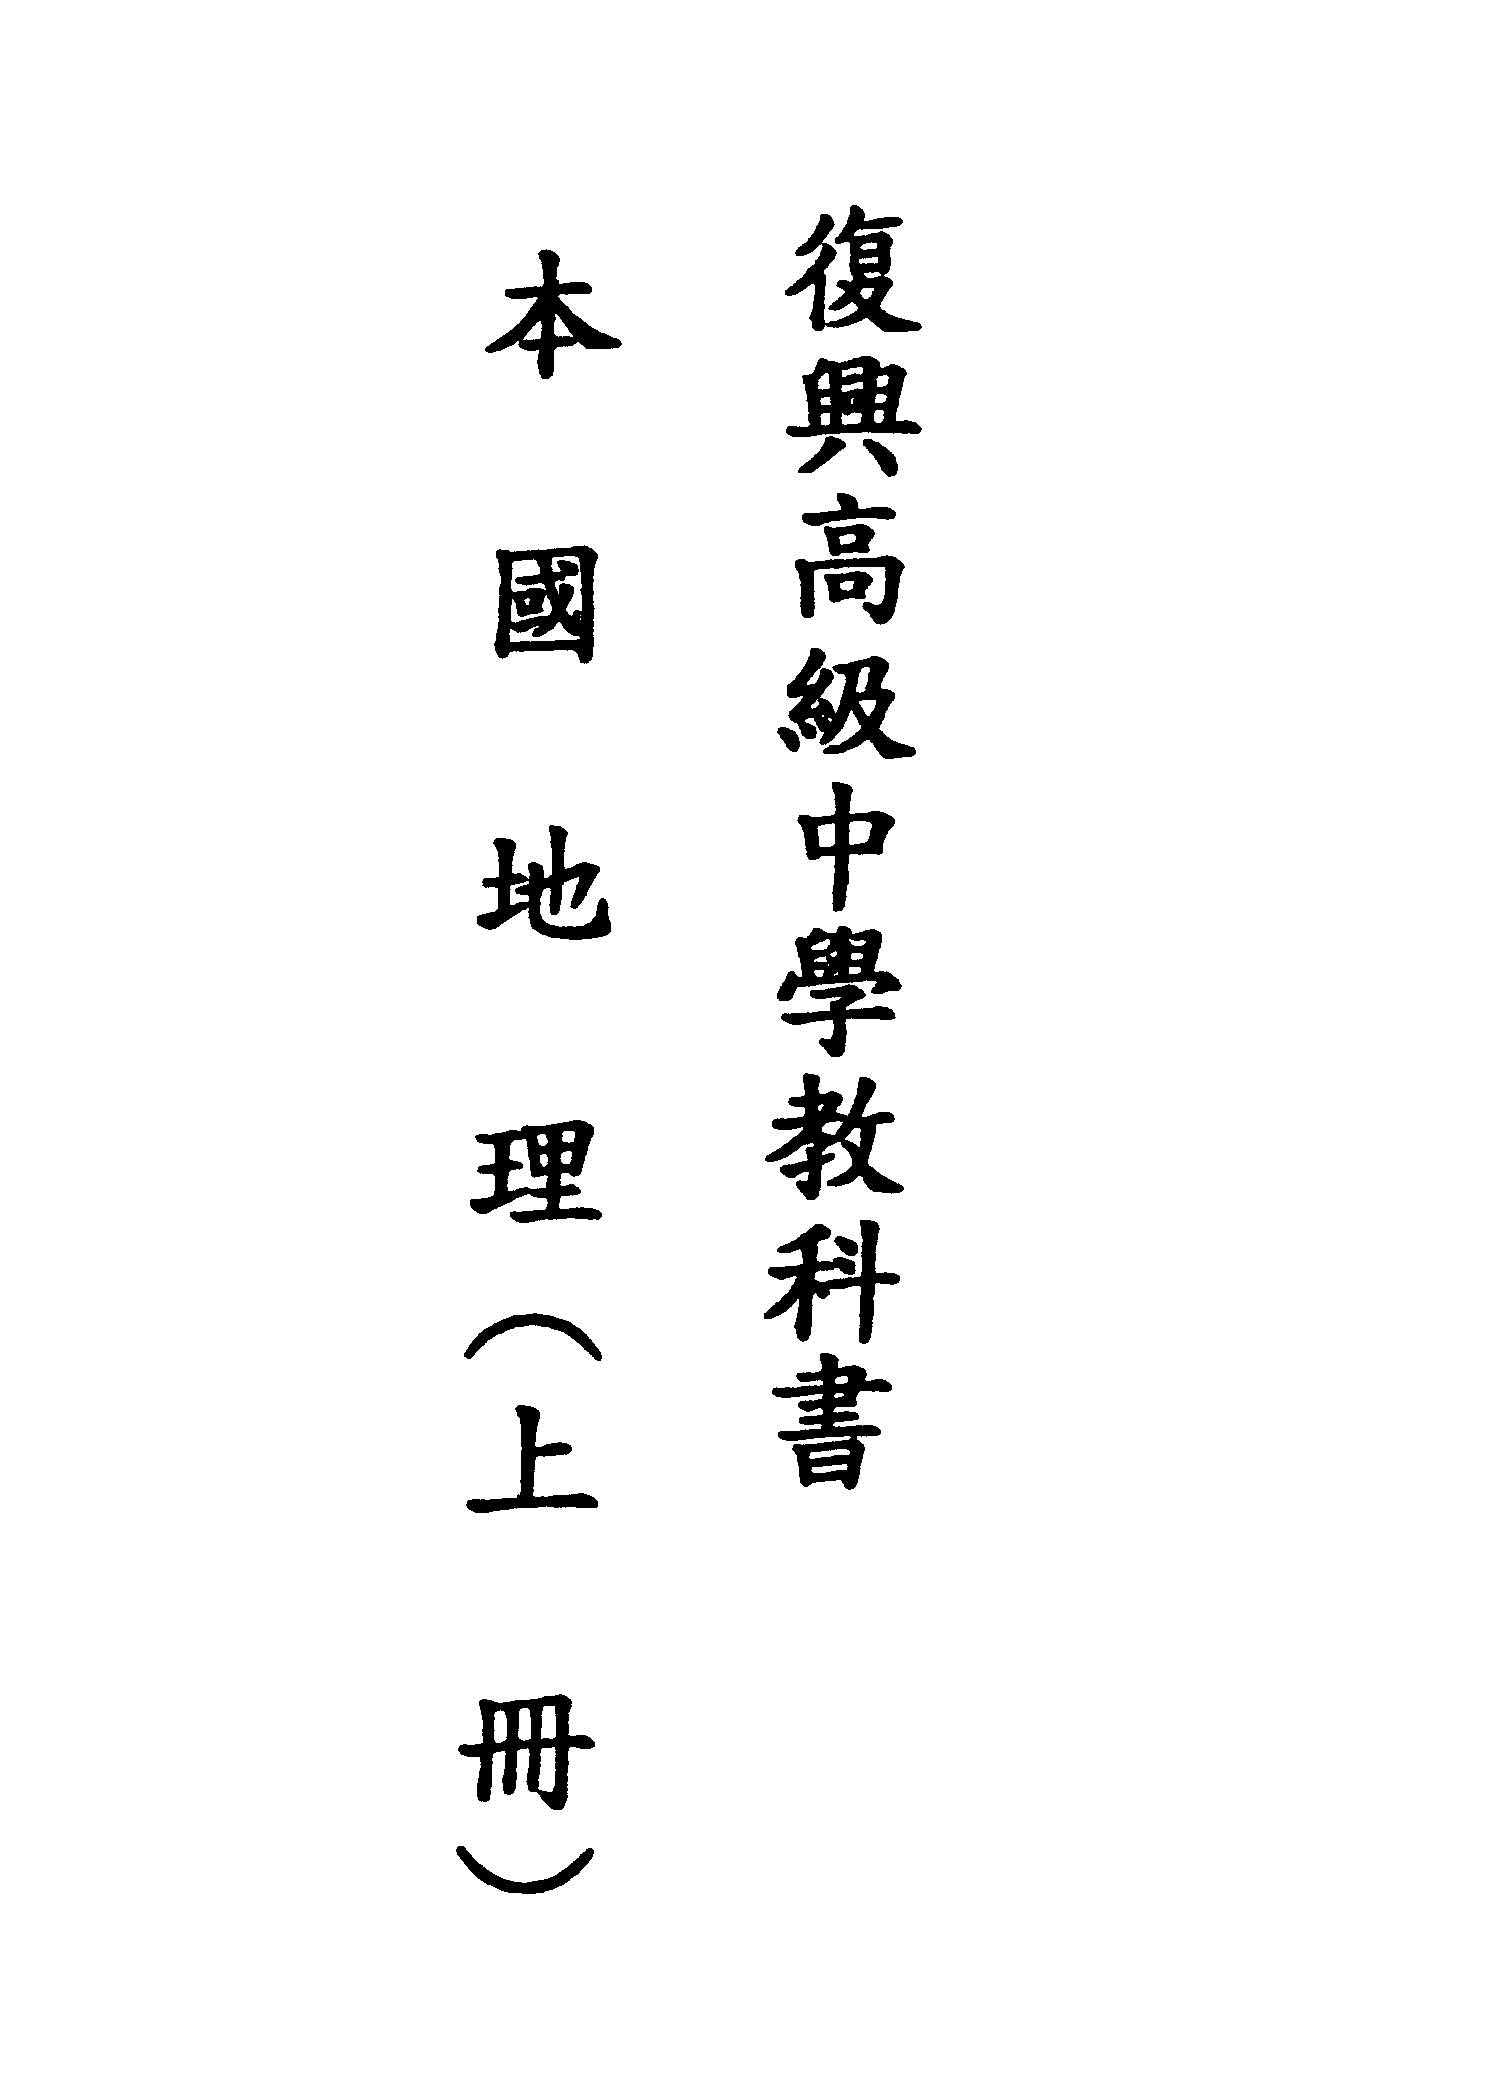 復興高級中學教科書
本國地理（上冊）